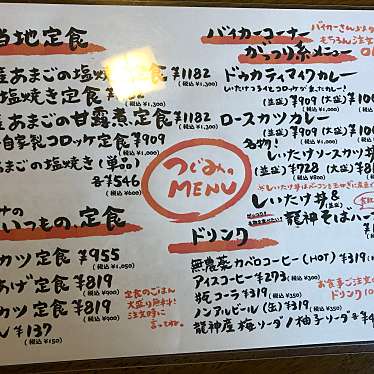 当地定食
産あまごの塩焼き定食 ¥1182
(税込 ¥1,300)
塩焼き定食 ¥1182
(税込 ¥1,300)
産あまごの甘露煮定食 ¥1182
(税込 ¥1,300)
自家製コロッケ定食 ¥909
(税込 ¥1,000)
まごの塩焼き(単品)
各¥546
(税込 ¥600)
つぐみの
MENU
いつもの定食
カツ定食 ¥955
(税込 ¥1,050)
あげ定食 ¥819
(税込 ¥900)
カツ定食 ¥819
(税込 ¥900)
¥137
(税込 ¥150)
定食のごはん
大盛り無料!
注文時に
言ってね。
バイカーコーナー
がっつり系メニュー
バイカーさんより
もちろん注文
ドゥカティマイクカレー
しいたけコロッケが
(並盛) ¥909 (大盛) ¥100
ロースカツカレー
(並盛) ¥909 (大盛) ¥10
名物!
しいたけソースカツ丼
(並盛) ¥728 (大盛) ¥8
しいたけ丼&
龍神そばハーフ
ドリンク
無農薬 カペロコーヒー (HOT) ¥319
(税込 ¥350)
アイスコーヒー ¥273
(税込 ¥300)
瓶コーラ ¥319
(税込 ¥350)
ノンアルビール (缶) ¥319
(税込 ¥350)
龍神産 梅ソーダ / 柚子ソーダ 各¥4
お食事ご注文
ドリンク10